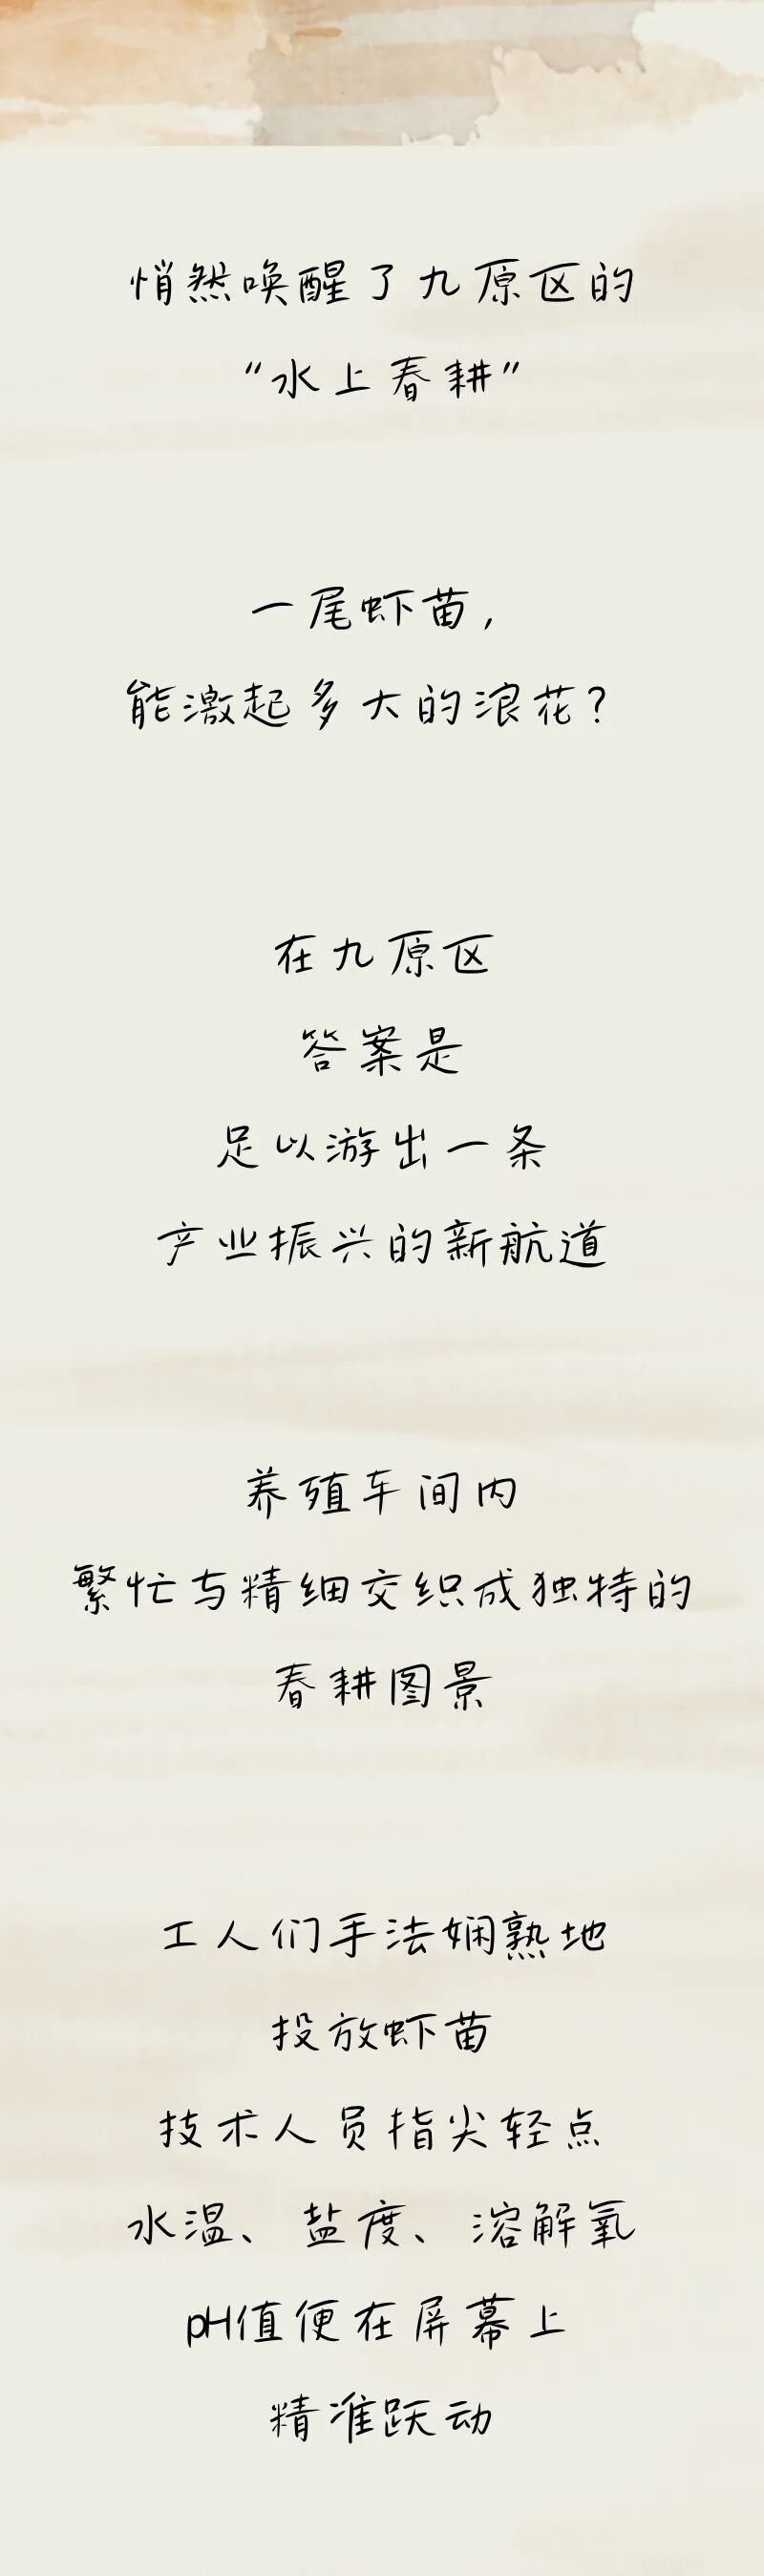 悄然唤醒了九原区的
“水上春耕”
一尾虾苗，
能激起多大的浪花？
在九原区
答案是
足以游出一条
产业振兴的新航道
养殖车间内
繁忙与精细交织成独特的
春耕图景
工人们手法娴熟地
投放虾苗
技术人员指尖轻点
水温、盐度、溶解氧
pH值便在屏幕上
精准跃动